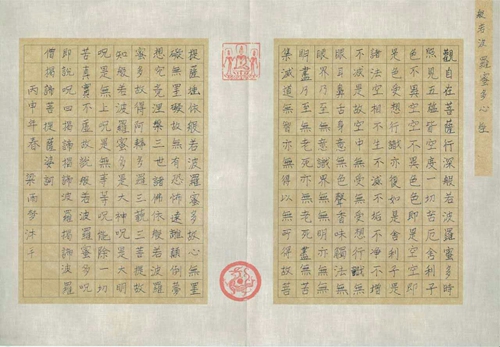 般若波羅蜜多心經
觀自在菩薩行深般若波羅蜜多時
照見五蘊皆空度一切苦厄舍利子
色不異空空不異色色即是空空即
是色受想行識亦復如是舍利子是
諸法空相不生不滅不垢不淨不增
不減是故空中無色無受想行識無
眼耳鼻舌身意無色聲香味觸法無
眼界乃至無意識界無無明亦無無
明盡乃至無老死亦無老死盡無苦
集滅道無智亦無得以無所得故菩
提薩埵依般若波羅蜜多故心無罣
礙無罣礙故無有恐怖遠離顛倒夢
想究竟涅槃三世諸佛依般若波羅
蜜多故得阿耨多羅三藐三菩提故
知般若波羅蜜多是大神呪是大明
呪是無上呪是無等等呪能除一切
苦真實不虛故說般若波羅蜜多呪
即說呪曰揭諦揭諦波羅揭諦波羅
僧揭諦菩提薩婆訶
丙申年春 梁雨夢沐手